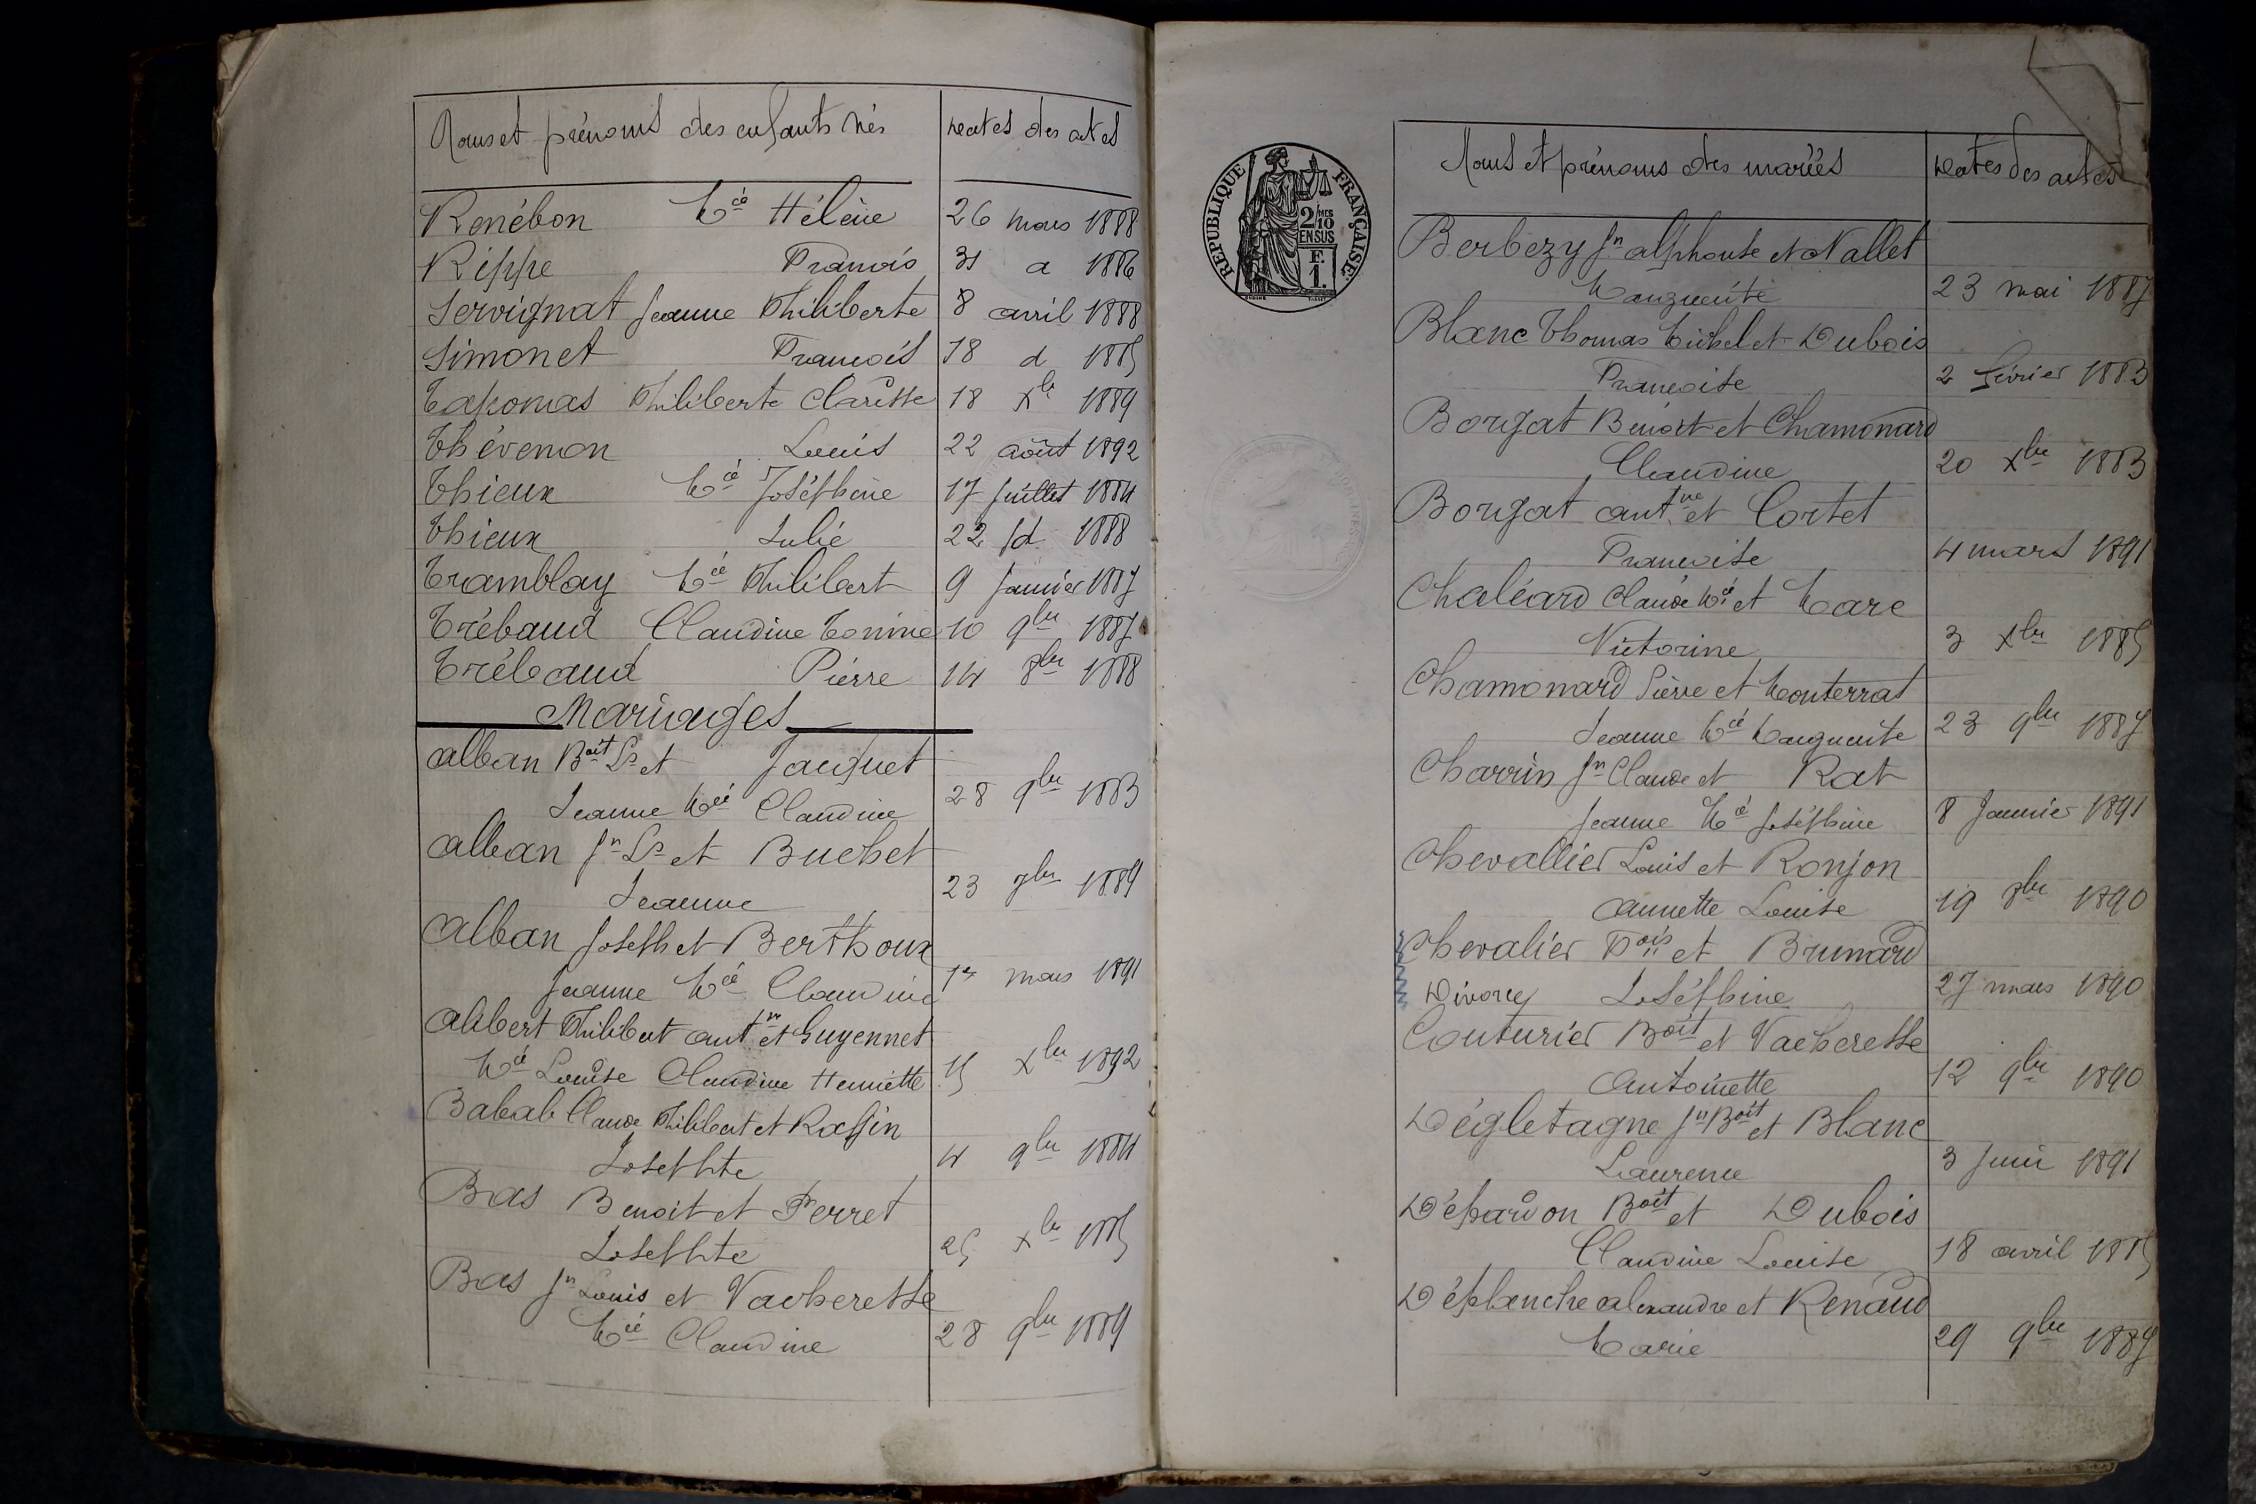 Noms et prénoms des enfants nés
Dates des actes
Renébon Mie Hélène 26 mars 1888
Rippe François 31 d 1886
Servignat Jeanne Philiberte 8 avril 1888
Simonet François 18 d 1885
Taponas Philiberte Clarisse 18 Xbre 1889
Thévenon Louis 22 août 1892
Thieux Mie Joséphine 17 Juillet 1884
Thieux Julie 22 Jd 1888
Tramblay Mie Philibert 9 Janvier 1887
Trébaud Claudine Tonine 10 9bre 1887
Trébaud Pierre 14 8bre 1888
Mariages
Alban Boit Ls et Jacquet
Jeanne Mie Claudine 28 9bre 1883
Alban Jn Ls et Buchet
Jeanne 23 7bre 1889
Alban Joseph et Berthoux
Jeanne Mie Claudine 14 mars 1891
Alibert Philibert Antne et Guyennet
Mie Louise Claudine Henriette 15 Xbre 1892
Babab Claude Philibert et Raffin
Josephte 4 9bre 1884
Bas Benoit et Perret
Josephte 25 Xbre 1885
Bas Jn Louis et Vacheresse
Mie Claudine 28 9bre 1889
RÉPUBLIQUE FRANÇAISE
2/10 MES
EN SUS
F.
1.
Noms et prénoms des mariés
Dates des actes
Berbezy Jn Alphonse et Nallet
Marguerite 23 mai 1887
Blanc Thomas Michel et Dubois
Françoise 2 février 1883
Borgat Benoît et Chamonard
Claudine 20 Xbre 1883
Borgat Antne et Cortet
Françoise 4 mars 1891
Chaléard Claude Mie et Marc
Victorine 3 Xbre 1885
Chamonard Pierre et Monterrat
Jeanne Mie Marguerite 23 9bre 1887
Charrin Jn Claude et Rat
Jeanne Mie Joséphine 8 Janvier 1891
Chevallier Louis et Ronjon
Annette Louise 19 8bre 1890
Chevalier Fois et Brunard
Divorcy Joséphine 27 mars 1890
Couturier Boit et Vacheresse
Antoinette 12 9bre 1890
Dégletagne Jn Boit et Blanc
Laurence 3 Juin 1891
Dépardon Boit et Dubois
Claudine Louise 18 avril 1885
Déplanche Alexandre et Renaud
Marie 29 9bre 1887